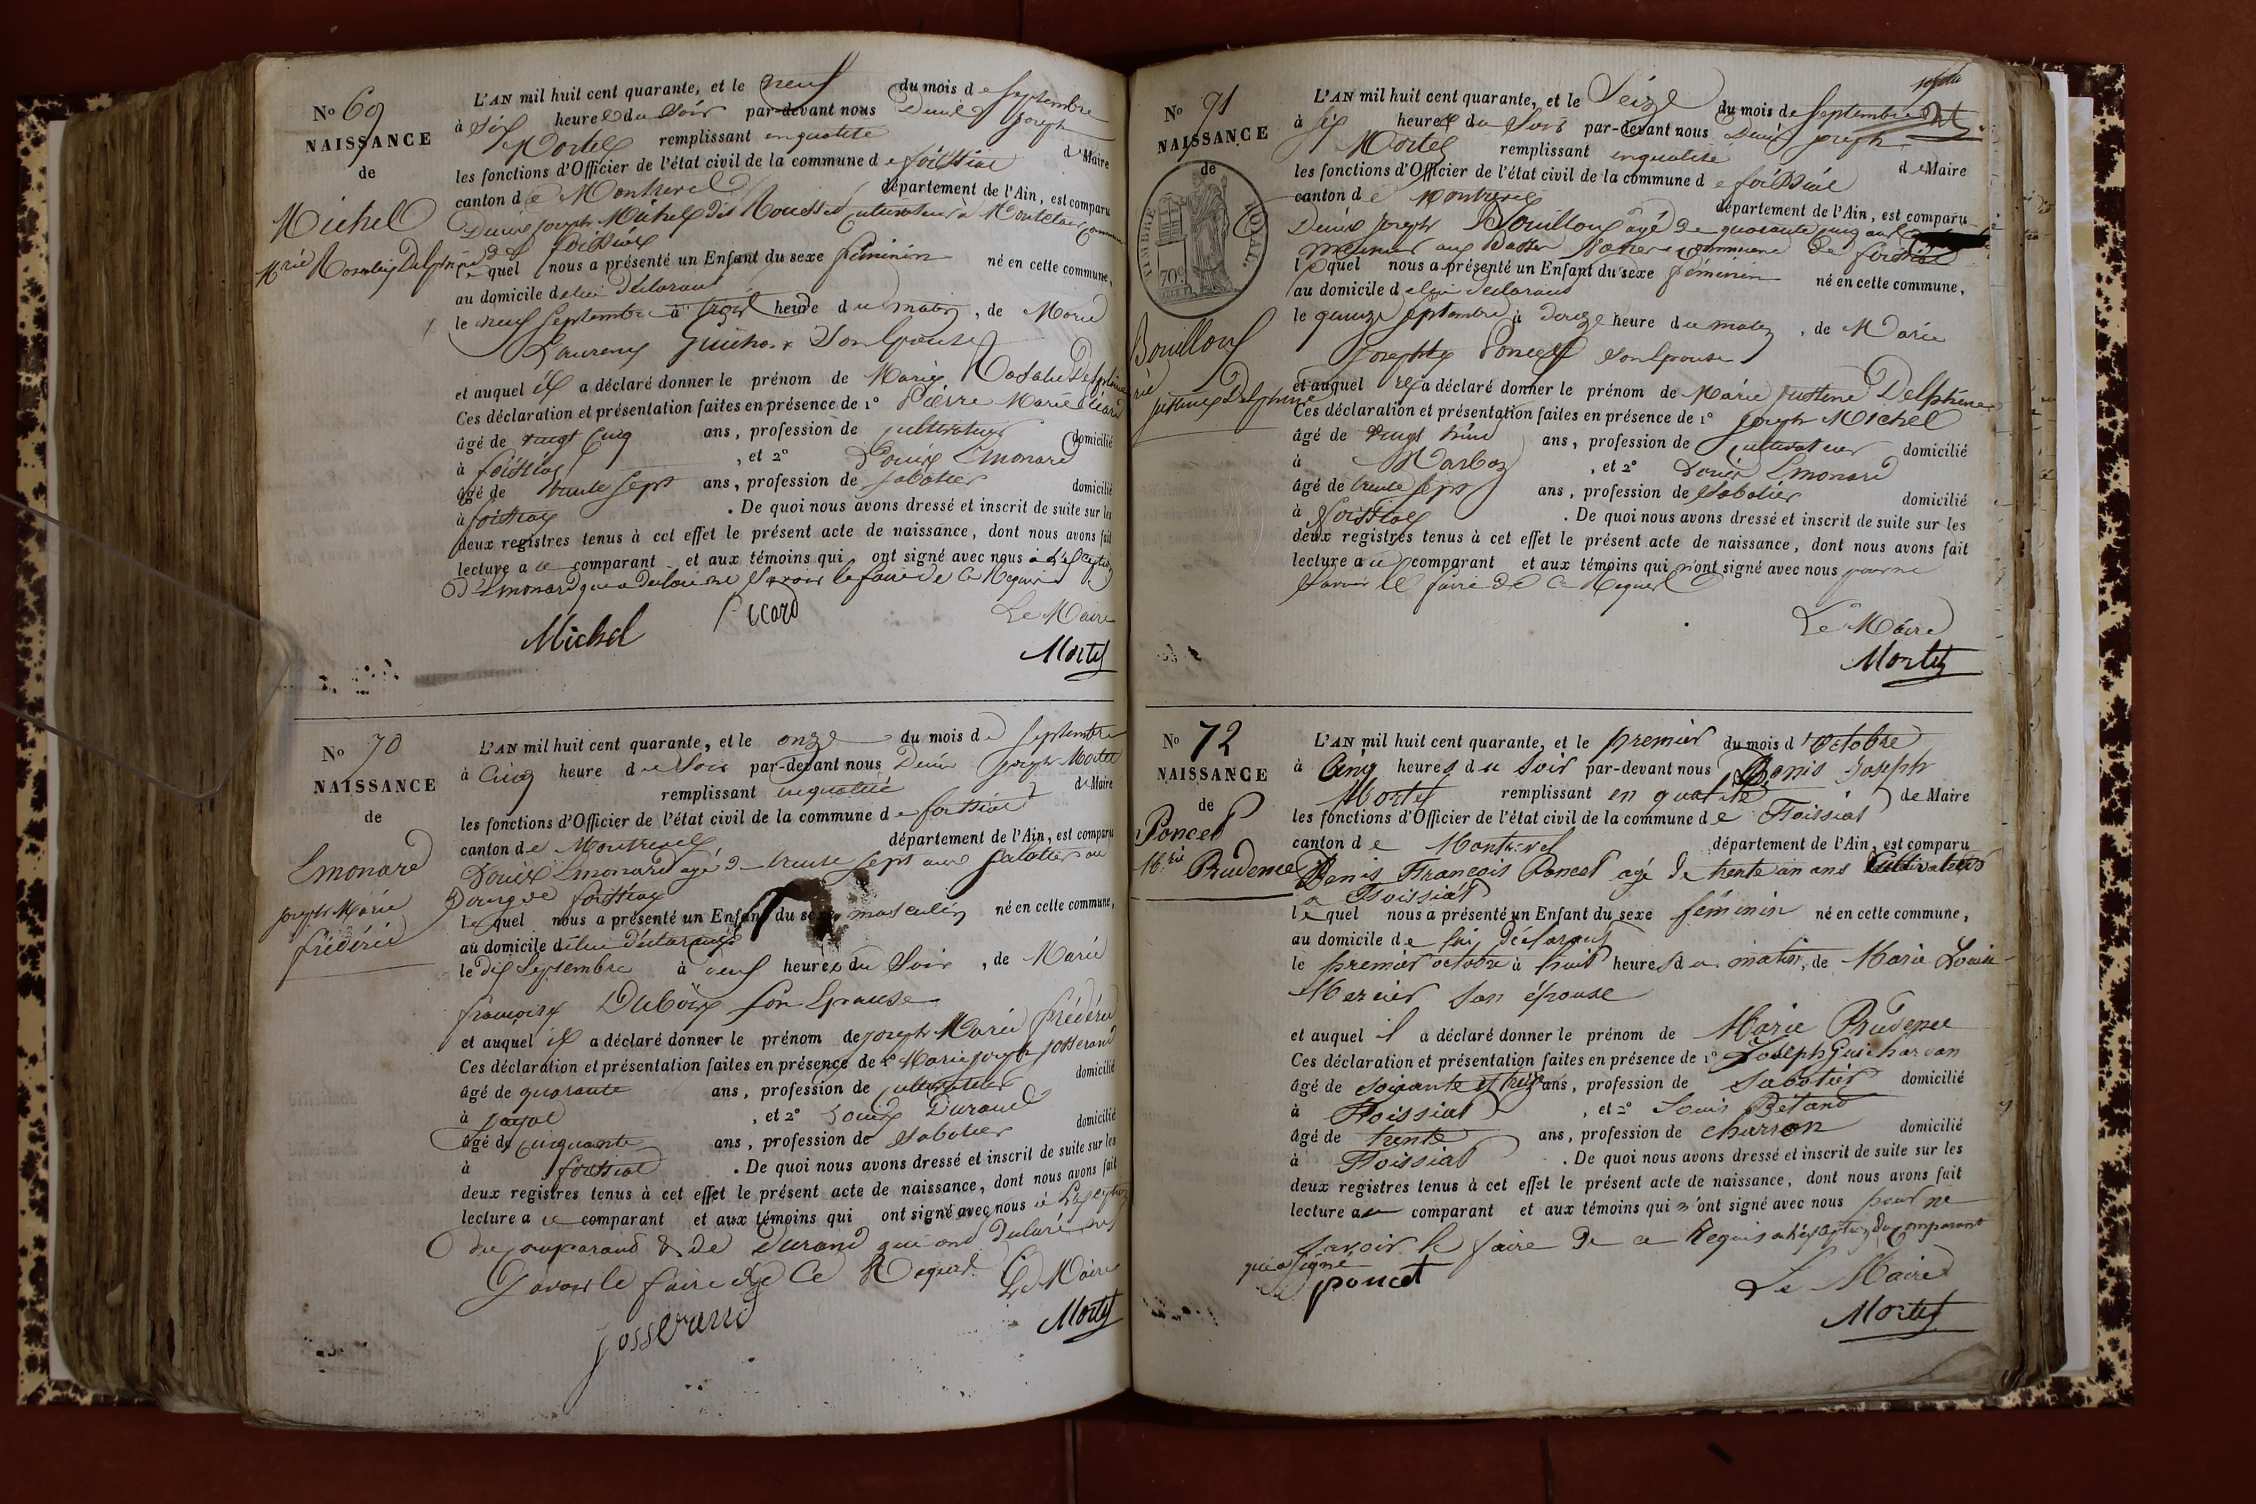 No 69
NAISSANCE
de
Michel
Mrie Rosalie Delphine
L'AN mil huit cent quarante, et le neuf du mois de Septembre
à Six heures du Soir par-devant nous Denis Joseph
Mortel remplissant en qualité de Maire
les fonctions d'Officier de l'état civil de la commune de foissiat
canton de Montrevel département de l'Ain, est comparu
Denis Joseph Michel dit Rousset Cultivateur à Montelay Commune
de foissiat
lequel nous a présenté un Enfant du sexe féminin né en cette commune,
au domicile de lui déclarant
le neuf Septembre à trois heure du matin, de Marie
Laurence Guichon Son Epouse
et auquel il a déclaré donner le prénom de Marie Rosalie Delphine
Ces déclaration et présentation faites en présence de 1° Pierre Marie Picard
âgé de vingt Cinq ans, profession de Cultivateur domicilié
à foissiat, et 2° Louis Emonard
âgé de trente Sept ans, profession de Sabotier domicilié
à foissiat. De quoi nous avons dressé et inscrit de suite sur les
deux registres tenus à cet effet le présent acte de naissance, dont nous avons fait
lecture au comparant et aux témoins qui ont signé avec nous à l'Exception
d'Emonard qui a déclaré ne Savoir le faire de Ce Requis
Le Maire
Michel Picard
Mortel
No 70
NAISSANCE
de
Emonard
Joseph Marie
frédéric
L'AN mil huit cent quarante, et le onze du mois de Septembre
à Cinq heure du Soir par-devant nous Denis Joseph Mortel
remplissant en qualité de Maire
les fonctions d'Officier de l'état civil de la commune de foissiat
canton de Montrevel département de l'Ain, est comparu
Louis Emonard agé de trente Sept ans Sabotier au
Bourg de foissiat
lequel nous a présenté un Enfant du sexe masculin né en cette commune,
au domicile de lui déclarant
le dix Septembre à neuf heures du Soir, de Marie
françoise Dubois Son Epouse
et auquel il a déclaré donner le prénom de Joseph Marie frédéric
Ces déclaration et présentation faites en présence de 1° Marie Joseph Josserand
âgé de quarante ans, profession de Cultivateur domicilié
à Jayat, et 2° Louis Durand
âgé de Cinquante ans, profession de Sabotier domicilié
à foissiat. De quoi nous avons dressé et inscrit de suite sur les
deux registres tenus à cet effet le présent acte de naissance, dont nous avons fait
lecture au comparant et aux témoins qui ont signé avec nous à l'Exception
du Comparant & de Durand qui ont déclaré ne
Savoir le faire de Ce Requis
Le Maire
Josserand
Mortel
No 71
NAISSANCE
de
TIMBRE ROYAL
70c
Bouilloux
Justine Delphine
L'AN mil huit cent quarante, et le Seize du mois de Septembre
à Six heures du Soir par-devant nous Denis Joseph
Mortel remplissant en qualité de Maire
les fonctions d'Officier de l'état civil de la commune de foissiat
canton de Montrevel département de l'Ain, est comparu
Denis Joseph Bouilloux âgé de quarante cinq ans
meunier aux commune de foissiat
lequel nous a présenté un Enfant du sexe féminin né en cette commune,
au domicile de lui déclarant
le quinze Septembre à douze heure du matin, de Marie
Josephte Poncet Son Epouse
et auquel il a déclaré donner le prénom de Marie Justine Delphine
Ces déclaration et présentation faites en présence de 1° Joseph Michel
âgé de vingt ans, profession de Cultivateur domicilié
à Marboz, et 2° Louis Emonard
âgé de trente Sept ans, profession de Sabotier domicilié
à Foissiat. De quoi nous avons dressé et inscrit de suite sur les
deux registres tenus à cet effet le présent acte de naissance, dont nous avons fait
lecture au comparant et aux témoins qui n'ont signé avec nous pour ne
Savoir le faire de Ce Requis
Le Maire
Mortel
No 72
NAISSANCE
de
Poncet
M.rie Prudence
L'AN mil huit cent quarante, et le premier du mois d'Octobre
à Cinq heures du Soir par-devant nous Denis Joseph
Mortel remplissant en qualité de Maire
les fonctions d'Officier de l'état civil de la commune de Foissiat
canton de Montrevel département de l'Ain, est comparu
Denis François Poncet agé de trente un ans Cultivateur
a Foissiat
lequel nous a présenté un Enfant du sexe féminin né en cette commune,
au domicile de lui déclarant
le premier octobre à huit heures du matin, de Marie Louise
Mercier Son épouse
et auquel il a déclaré donner le prénom de Marie Prudence
Ces déclaration et présentation faites en présence de 1° Joseph Guichardan
âgé de soixante et treize ans, profession de Sabotier domicilié
à Foissiat, et 2° Louis Bétand
âgé de trente ans, profession de charron domicilié
à Foissiat. De quoi nous avons dressé et inscrit de suite sur les
deux registres tenus à cet effet le présent acte de naissance, dont nous avons fait
lecture au comparant et aux témoins qui n'ont signé avec nous pour ne
savoir le faire de ce Requis a l'exception du Comparant
qui a signé
poncet
Le Maire
Mortel